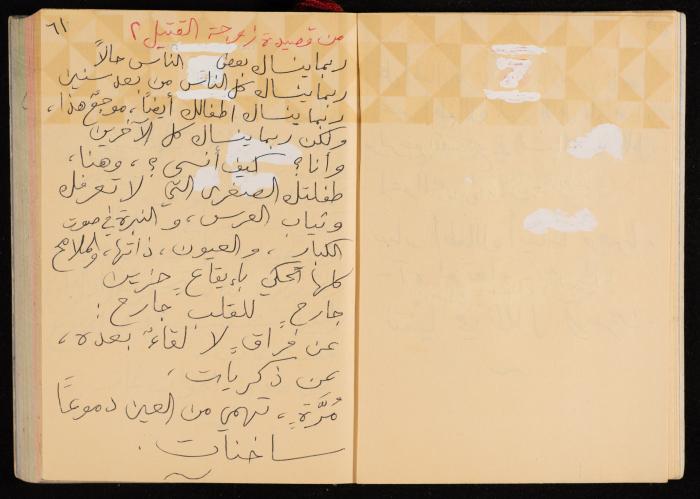 ٦١
من قصيدة زوجة القتيل ٢
ربما ينساك بعض الناس حالاً
ربما ينساك كل الناس من بعد سنين
ربما ينساك اطفالك أيضاً، موجعٌ هذا،
ولكن ربما ينساك كل الآخرين
وأنا؟ كيف أنسى؟، وهنا،
طفلتك الصغرى التي لا تعرفك
وثياب العرس، والنبرة في صوت
الكبار، والعيون، ذاتها، والملامح
كلها تحكي بإيقاعٍ حزين
جارحٍ للقلب جارح:
عن فراقٍ لا لقاءً بعده،
عن ذكريات،
مُرَّةٍ، تهمي من العين دموعاً
ساخنات.